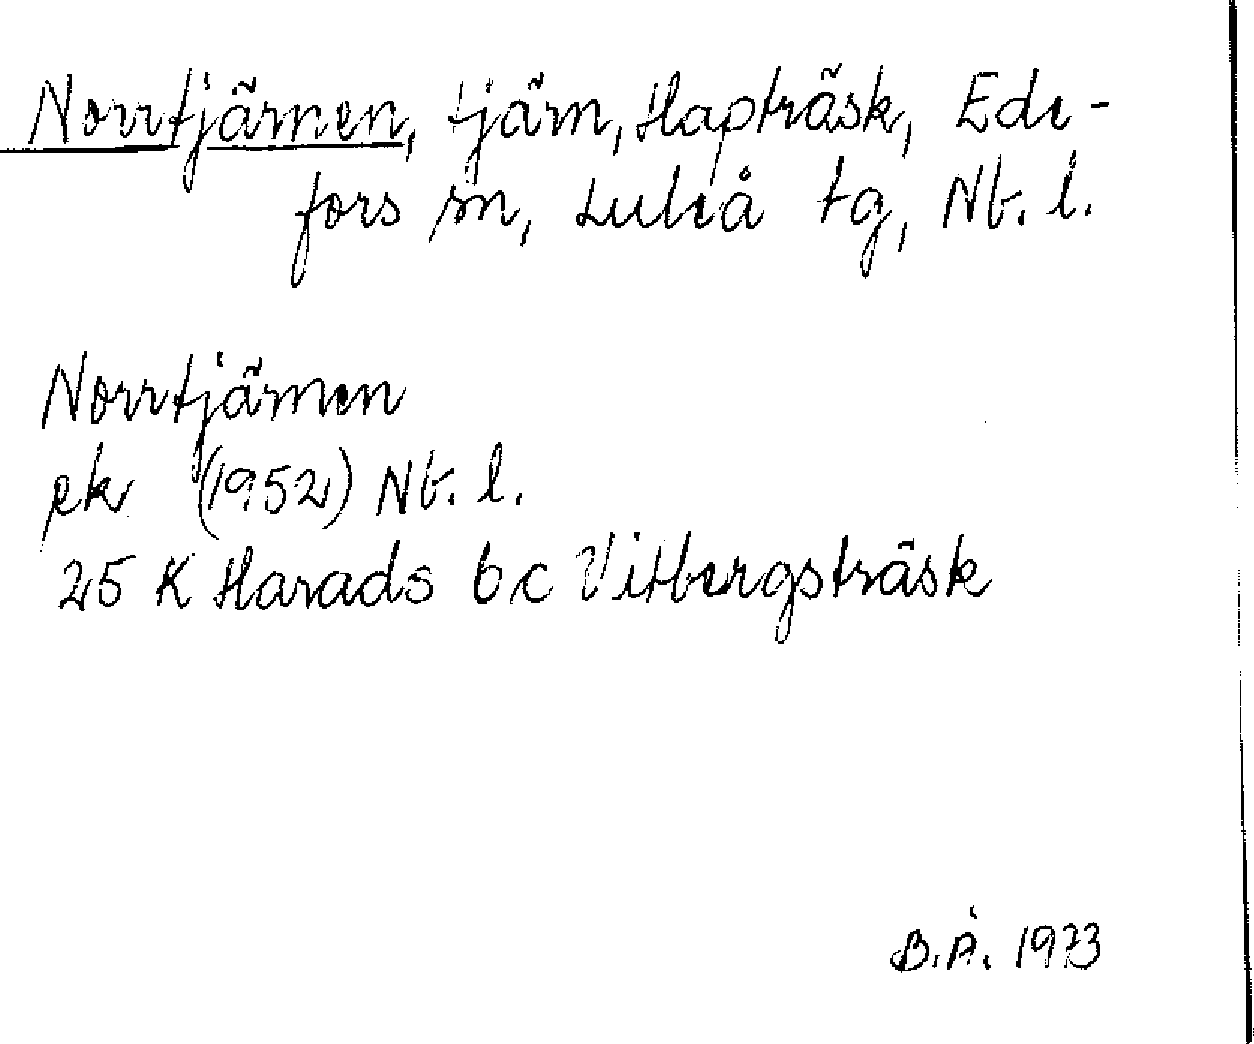 Norrtjärnen, tjärn, Hapträsk, Ede-
fors sn, Luleå tg, Nb. l.
Norrtjärnen
ek (1952) Nb. l.
25 K Harads 6 c Vitbergsträsk
B.Å. 1973